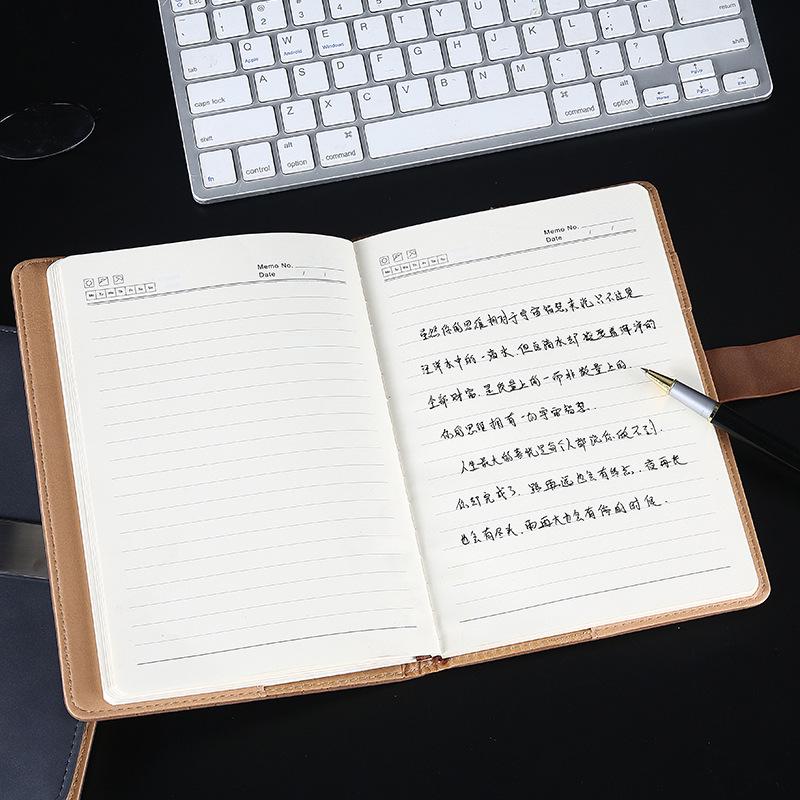 Esc
@ 2
# 3
Q W E R T Y U I O P
Apple Android Windows
return
tab
A S D F G H J K L
caps lock
Z X C V B N M
shift
shift
fn control alt option ⌘ command
⌘ command alt option Home PgUp PgDn End
Memo No.
Date / /
Mo Tu We Th Fr Sa Su
Memo No.
Date / /
Mo Tu We Th Fr Sa Su
虽然你的思维相对于宇宙智慧来说,只不过是
汪洋大海中的一滴水,但这滴水却凝聚着海洋的
全部财富,是质量上的一而非数量上的一
你的思维拥有一切宇宙智慧.
人生最大的喜悦是每个人都说你做不到.
你却完成了.路再远也会有终点,夜再长
也会有尽头,雨再大也会有停的时候.